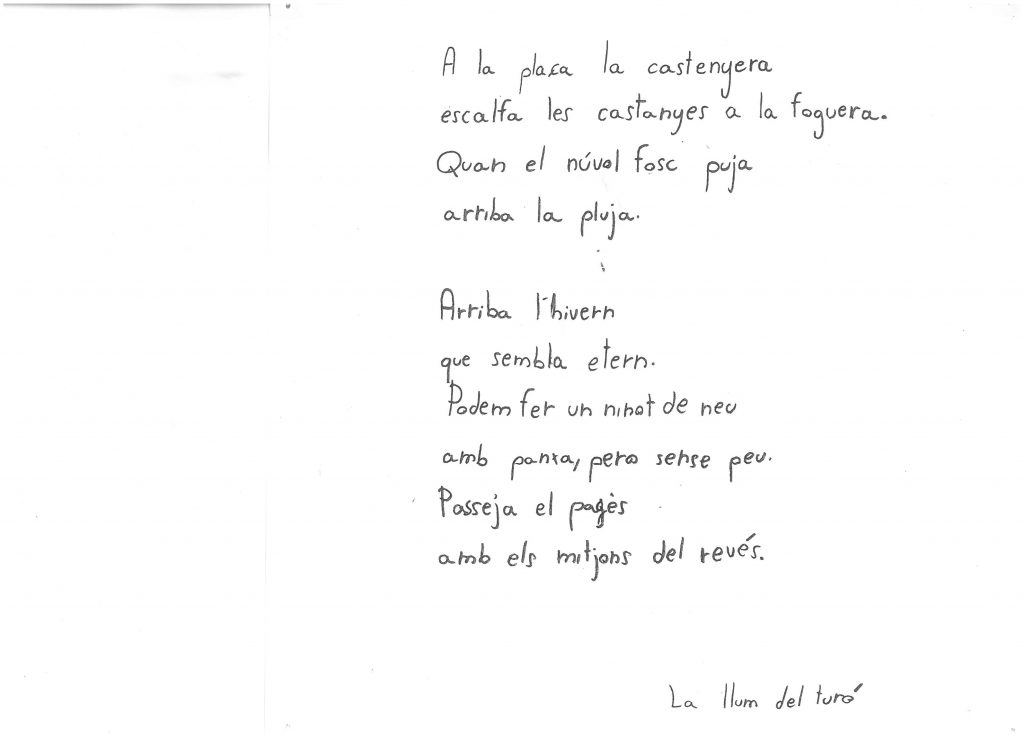 A la plaça la castenyera
escalfa les castanyes a la foguera.
Quan el núvol fosc puja
arriba la pluja.
Arriba l'hivern
que sembla etern.
Podem fer un ninot de neu
amb panxa, pero sense peu.
Passeja el pagès
amb els mitjons del revés.
La llum del turó